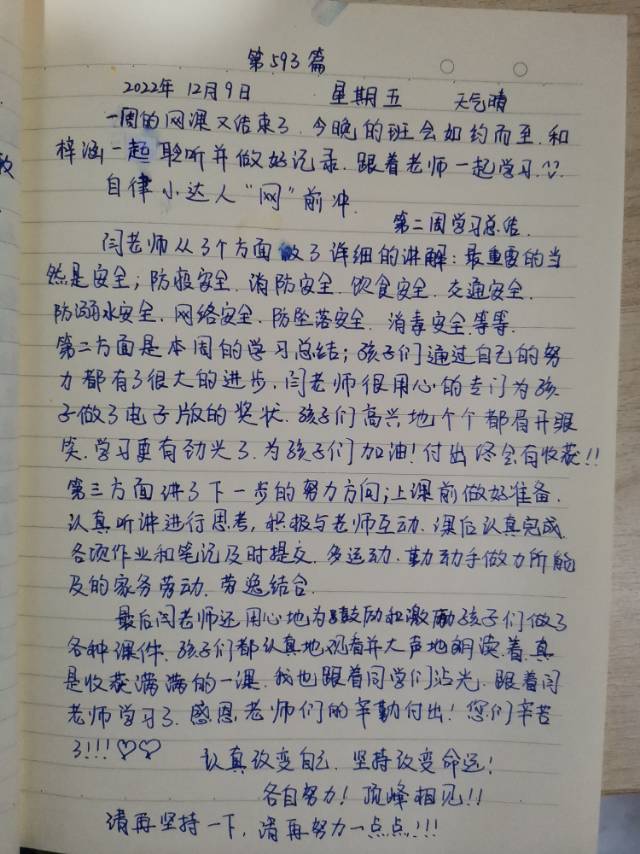 第593篇
2022年12月9日 星期五 天气晴
一周的网课又结束了.今晚的班会如约而至.和
梓涵一起聆听并做好记录.跟着老师一起学习.
自律小达人"网"前冲.
第二周学习总结.
闫老师从3个方面做了详细的讲解:最重要的当
然是安全;防疫安全.消防安全.饮食安全.交通安全.
防溺水安全.网络安全.防坠落安全.消毒安全等等.
第二方面是本周的学习总结;孩子们通过自己的努
力都有了很大的进步.闫老师很用心的专门为孩
子做了电子版的奖状.孩子们高兴地个个都眉开眼
笑.学习更有劲光了.为孩子们加油!付出终会有收获!!
第三方面讲了下一步的努力方向;上课前做好准备.
认真听讲进行思考,积极与老师互动.课后认真完成
各项作业和笔记及时提交.多运动.勤动手做力所能
及的家务劳动.劳逸结合.
最后闫老师还用心地为鼓励和激励孩子们做了
各种课件.孩子们都认真地观看并大声地朗读着.真
是收获满满的一课.我也跟着同学们沾光.跟着闫
老师学习了.感恩老师们的辛勤付出!您们辛苦
了!!!♡♡
认真改变自己.坚持改变命运!
各自努力!顶峰相见!!
请再坚持一下,请再努力一点点!!!